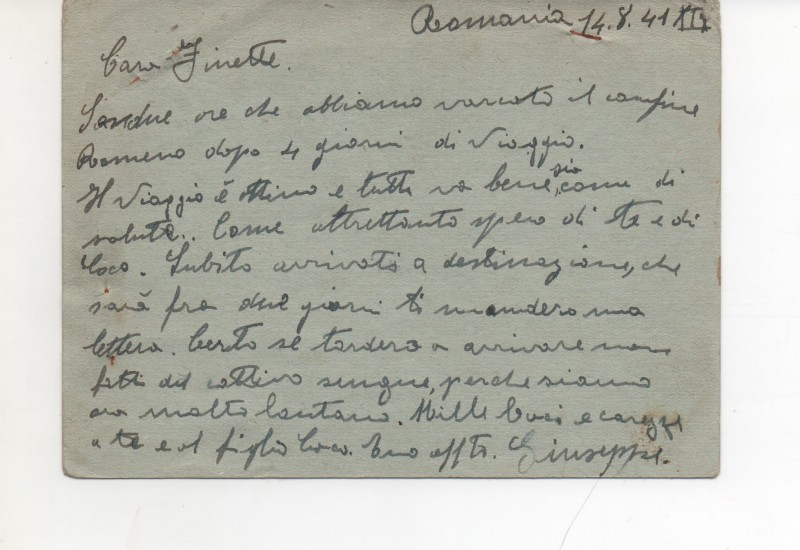 Romania 14.8.41 XIX
Cara Finette.
Son due ore che abbiamo varcato il confine
Romeno dopo 4 giorni di Viaggio.
Il Viaggio è ottimo e tutto va bene, sia come di
salute.. Come altrettanto spero di te e di
Coco. Subito arrivati a destinazione, che
sarà fra due giorni ti manderò una
lettera. Certo se tarderà a arrivare non
fatti del cattivo sangue, perche siamo
ora molto lontano. Mille baci e carezze
a te e al figlio Coco. tuo affto. Giuseppe.